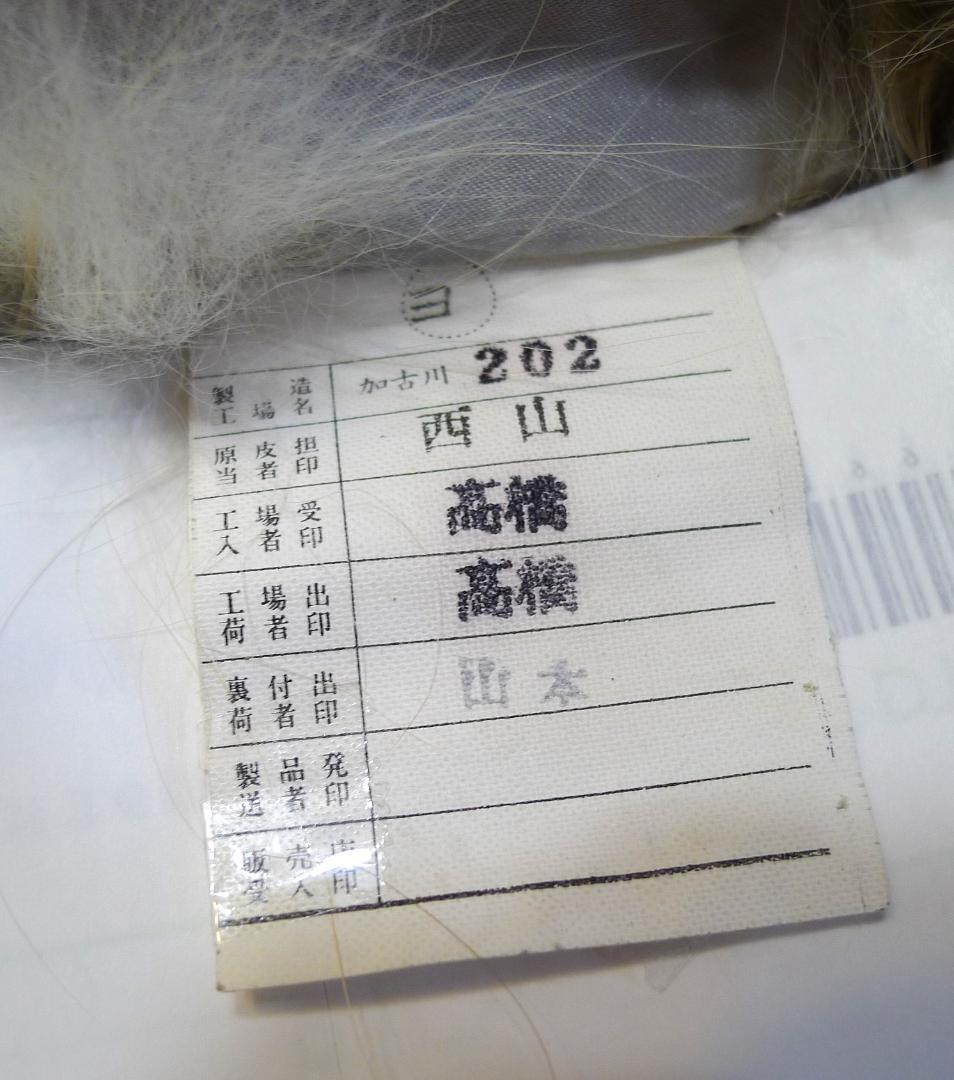 ヨ
製造
工場名
加古川 202
原皮担
当者印
西山
工場受
入者印
高橋
工場出
荷者印
高橋
裏付出
荷者印
山本
製品発
送者印
販売店
受入印